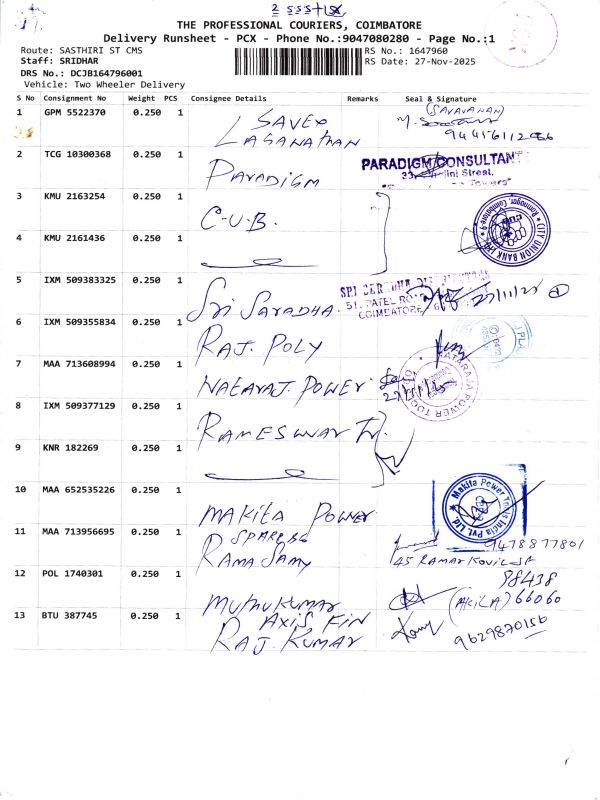 THE PROFESSIONAL COURIERS, COIMBATORE
Delivery Runsheet - PCX - Phone No.:9047080280 - Page No.:1
Route: SASTHIRI ST CMS
RS No.: 1647960
Staff: SRIDHAR
RS Date: 27-Nov-2025
DRS No.: DCJB164796001
Vehicle: Two Wheeler Delivery
S No Consignment No Weight PCS Consignee Details Remarks Seal & Signature
1 GPM 5522370 0.250 1 SAVEX
LASANATHAN
(SARAVANAN)
2 TCG 10300368 0.250 1 PARADIGM
PARADIGM CONSULTANT
3 KMU 2163254 0.250 1 C.U.B.
CITY UNION BANK
4 KMU 2161436 0.250 1
5 IXM 509383325 0.250 1 Sri SARADHA.
COIMBATORE
27/11/25
6 IXM 509355834 0.250 1 RAJ. POLY
7 MAA 713608994 0.250 1 NATARAJ. POWER
NATARAJA POWER TOOLS
8 IXM 509377129 0.250 1 RAMESWAR Tr.
9 KNR 182269 0.250 1
10 MAA 652535226 0.250 1 MAKITA POWER
Makita Power Tools India Pvt. Ltd.
SPARES
11 MAA 713956695 0.250 1 RAMASAMY
9478877801
45 RAMAR KOVIL ST
12 POL 1740301 0.250 1 MUTHUKUMAR
98438
(AKILA) 66060
AXIS FIN
13 BTU 387745 0.250 1 RAJ. KUMAR
9629870156